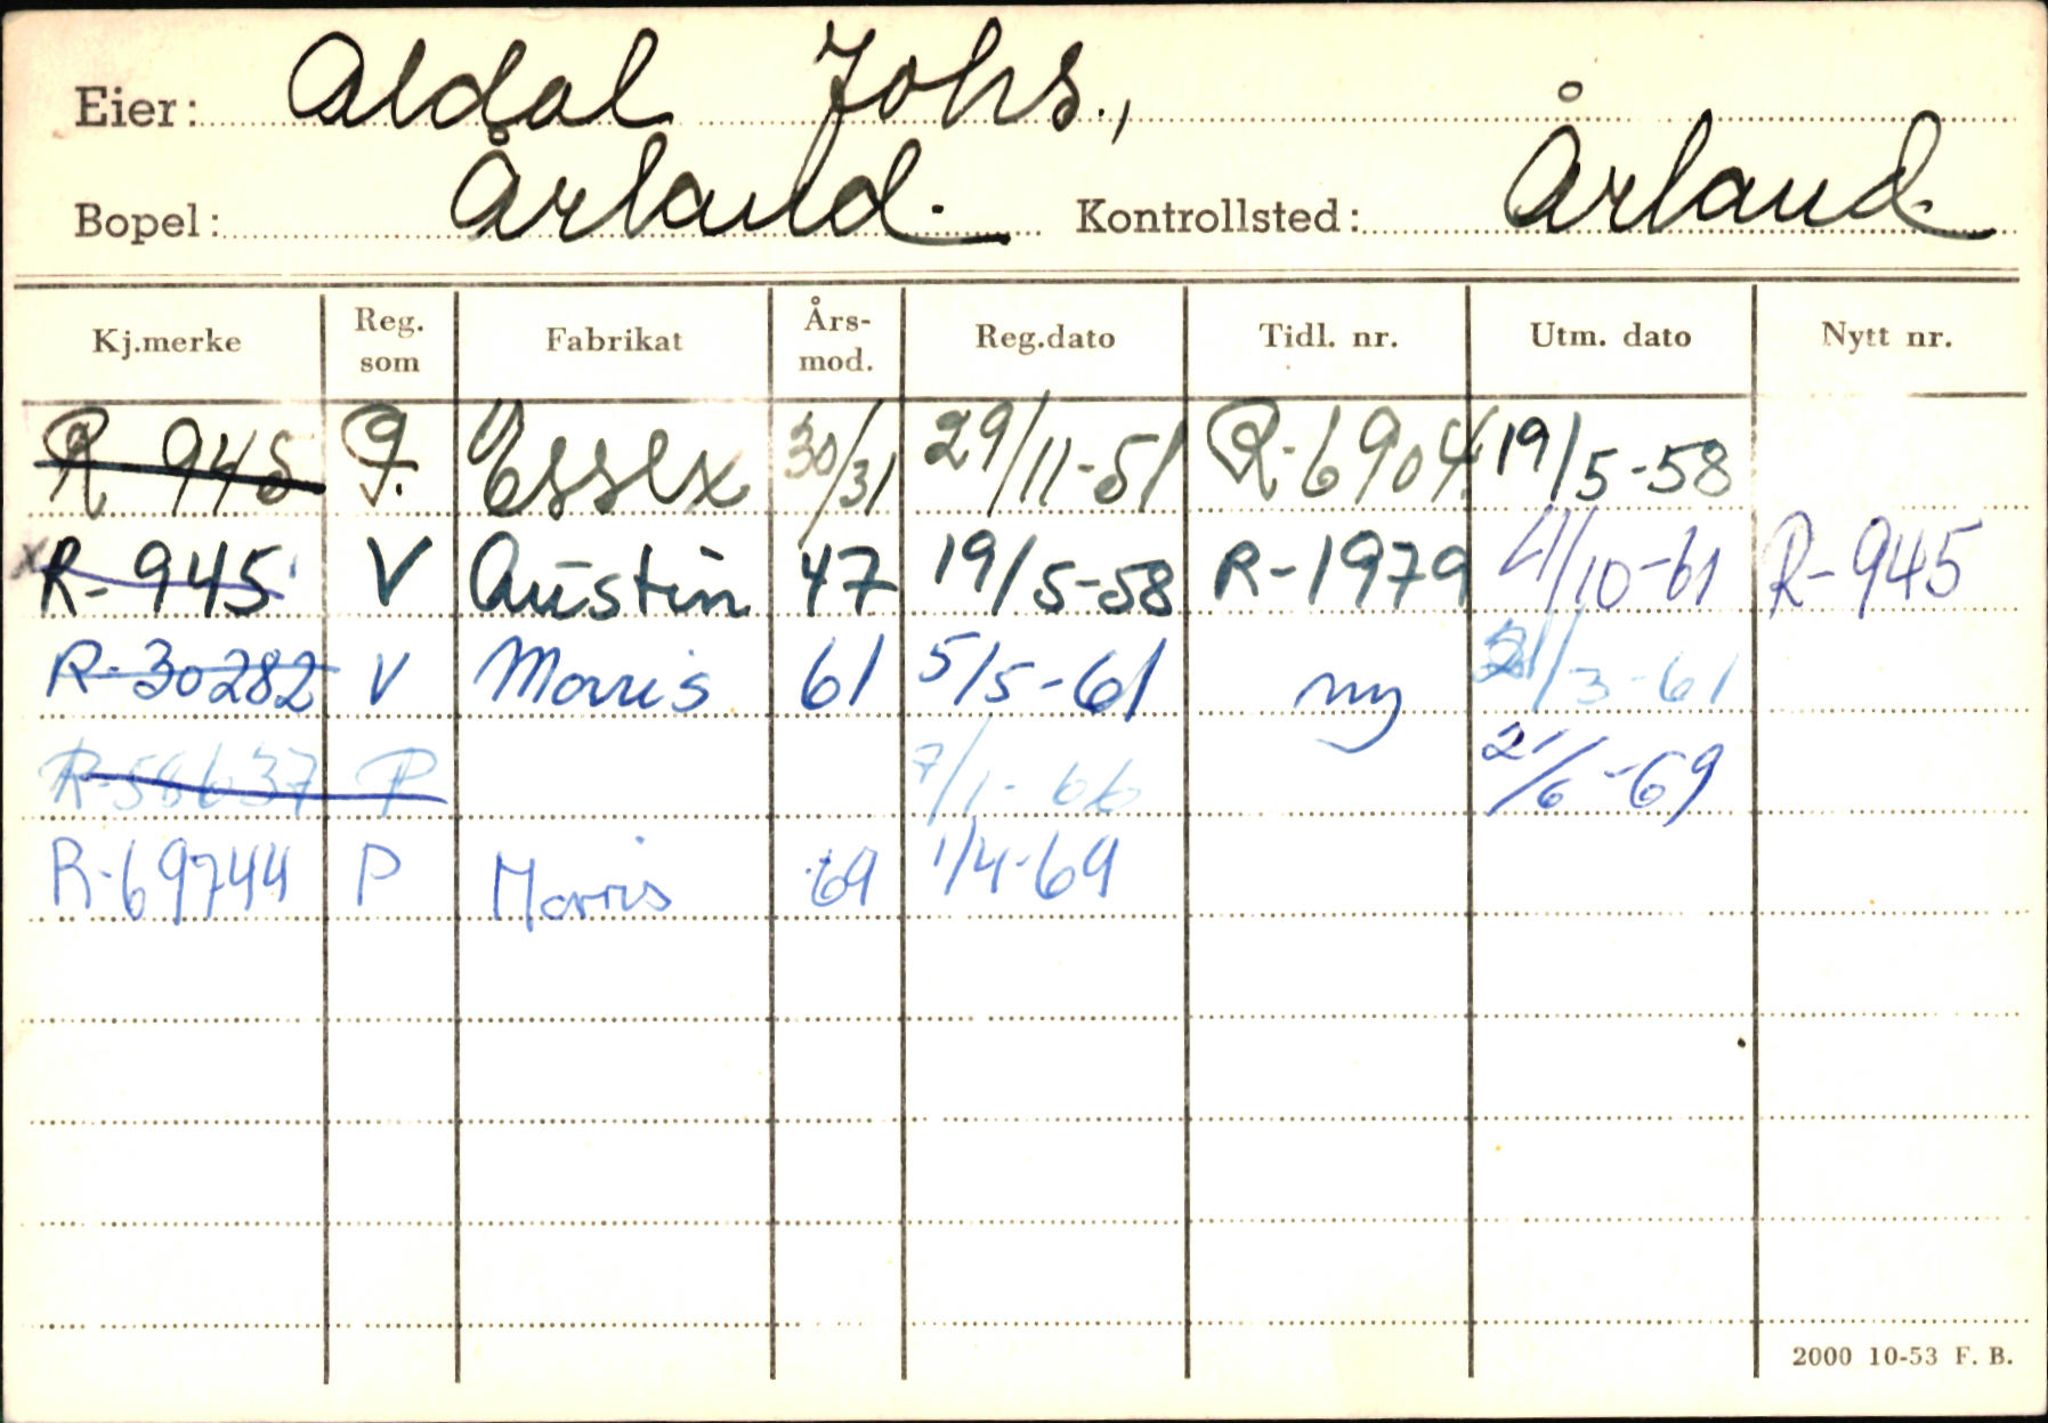 Eier: Aldal Johs.,
Bopel: Årland. Kontrollsted: Årland
Kj.merke Reg. som Fabrikat Års-mod. Reg.dato Tidl. nr. Utm. dato Nytt nr.
R 945 Essex 30/31 29/11-51 R-6904 19/5-58
R-945 V Austin 47 19/5-58 R-1979 4/10-61 R-945
R-30282 V Morris 61 5/5-61 ny /3-61
R-58637 P 7/1-66 21/6-69
R-69744 P Morris 69 1/4-69
2000 10-53 F. B.